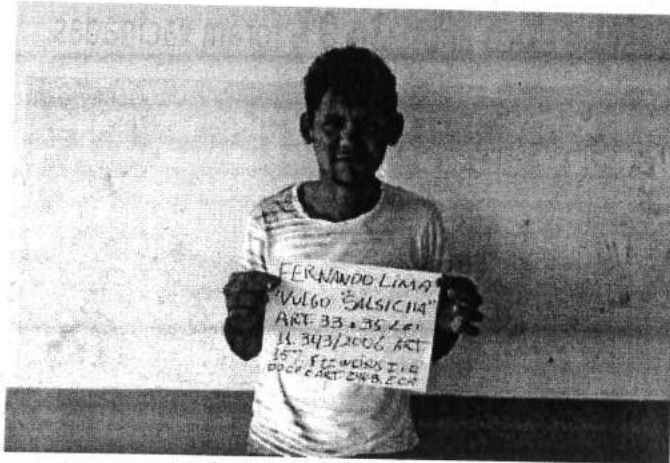 FERNANDO LIMA
"VULGO "SALSICHA"
ART. 33 e 35 LEI
11.343/2006 ART
157, § 2º INCISO I e II
DO CP E ART. 244-B, ECA